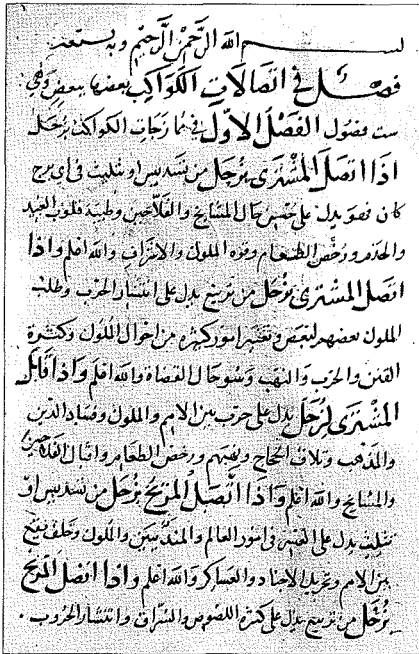 بسم الله الرحمن الرحيم وبه نستعين
فصل في اتصالات الكواكب بعضها ببعض وهي
ست فصول الفصل الاول في ممازجات الكواكب بزحل
اذا اتصل المشترى بزحل من تسديس او تثليث في اي برج
كان فهو يدل على حسن حال المشايخ والفلاحين وطيبة قلوب العبيد
والخدم ورخص الطعام وقوه الملوك والاشراف والله اعلم واذا
اتصل المشترى بزحل من تربيع يدل على انتشار الحرب وطلب
الملوك بعضهم لبعض وتغير امور كثيره من احوال الملوك وكثرة
الفتن والحرب والنهب وسوء حال القضاة والله اعلم واذا قابل
المشترى لزحل يدل على حرب بين الامم والملوك وفساد الدين
والمذهب وتلاف الحاج ونهبهم ورخص الطعام واقبال الفلاحين
والمشايخ والله اعلم واذا اتصل المريخ بزحل من تسديس او
تثليث يدل على في امور العالم والملوك وخلف يقع
بين الامم وتجريد الاجناد والعساكر والله اعلم واذا اتصل المريخ
بزحل من تربيع يدل على كثرة اللصوص والسراق وانتشار الحروب .